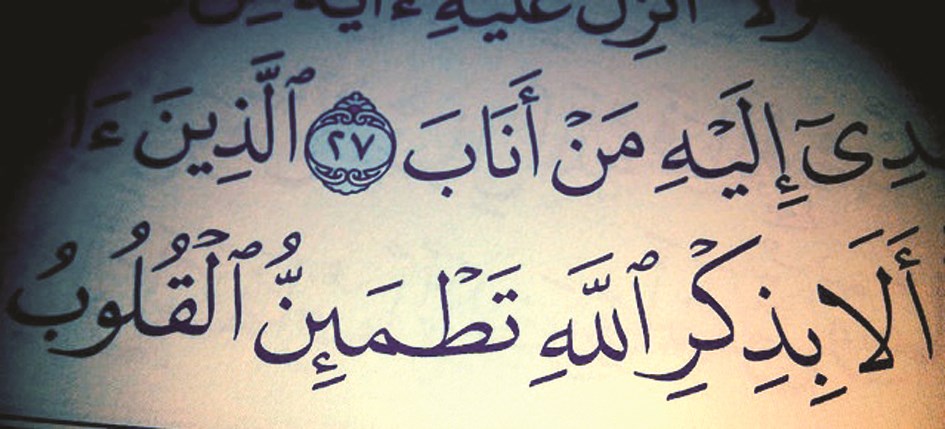 أُنزِلَ عَلَيْهِ ءَايَةٌ مِّن
دِىٓ إِلَيْهِ مَنْ أَنَابَ ٢٧ ٱلَّذِينَ ءَا
أَلَا بِذِكْرِ ٱللَّهِ تَطْمَئِنُّ ٱلْقُلُوبُ